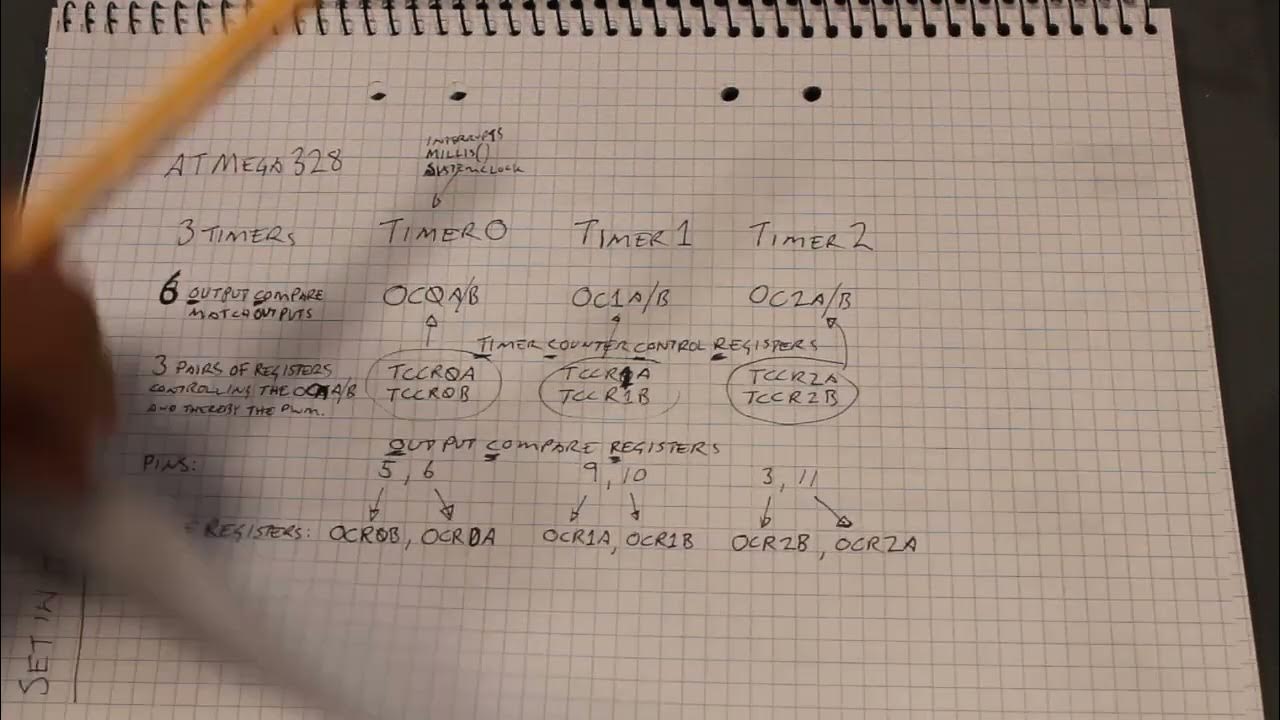 INTERRUPTS
MILLIS()
SYSTEMCLOCK
ATMEGA328
3 TIMERS TIMER0 TIMER1 TIMER2
6 OUTPUT COMPARE MATCH OUTPUTS OC0A/B OC1A/B OC2A/B
TIMER COUNTER CONTROL REGISTERS
3 PAIRS OF REGISTERS TCCR0A TCCR1A TCCR2A
CONTROLLING THE OCA/B TCCR0B TCCR1B TCCR2B
AND THEREBY THE PWM.
OUTPUT COMPARE REGISTERS
PINS: 5, 6 9, 10 3, 11
REGISTERS: OCR0B, OCR0A OCR1A, OCR1B OCR2B, OCR2A
SET IN